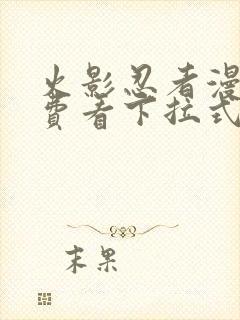 火影忍者漫
费看下拉式
末果